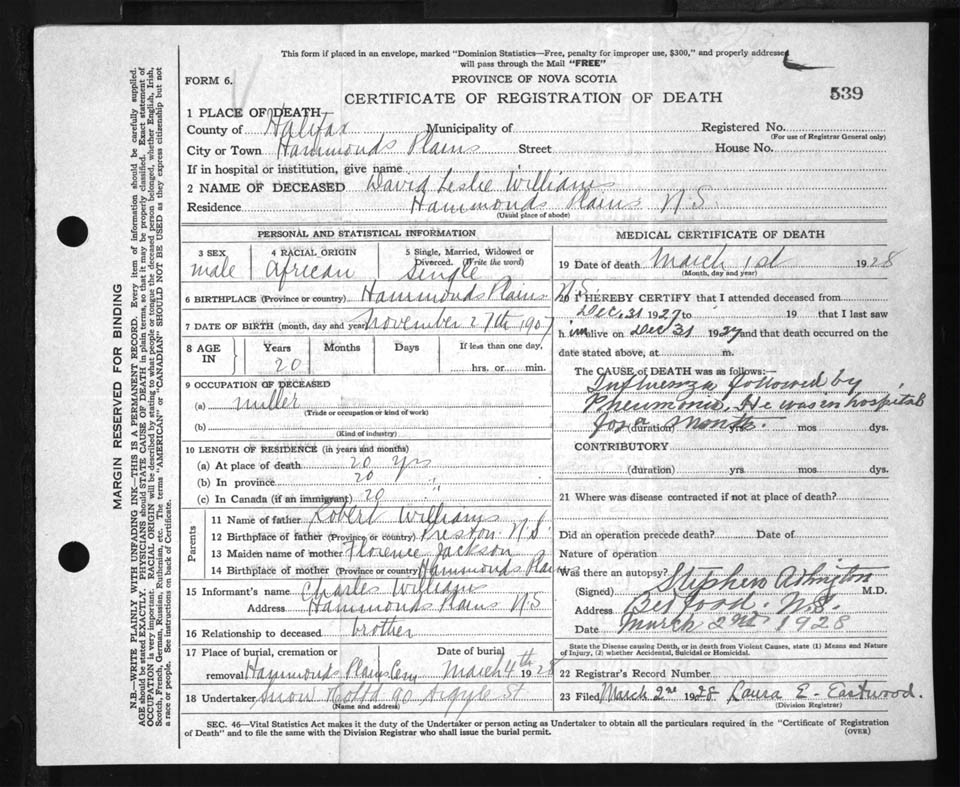 This form if placed in an envelope, marked "Dominion Statistics—Free, penalty for improper use, $300," and properly addressed
will pass through the Mail "FREE"
FORM 6.
PROVINCE OF NOVA SCOTIA
CERTIFICATE OF REGISTRATION OF DEATH
539
1 PLACE OF DEATH
County of Halifax Municipality of Registered No.
(For use of Registrar General only)
City or Town Hammonds Plains Street House No.
If in hospital or institution, give name
2 NAME OF DECEASED David Leslie Williams
Residence Hammonds Plains N.S.
(Usual place of abode)
PERSONAL AND STATISTICAL INFORMATION
3 SEX 4 RACIAL ORIGIN 5 Single, Married, Widowed or
Divorced. (Write the word)
male African Single
6 BIRTHPLACE (Province or country) Hammonds Plains N.S.
7 DATE OF BIRTH (month, day and year) November 27th 1907
8 AGE IN Years Months Days If less than one day,
20 hrs. or min.
9 OCCUPATION OF DECEASED
(a) miller
(Trade or occupation or kind of work)
(b)
(Kind of industry)
10 LENGTH OF RESIDENCE (in years and months)
(a) At place of death 20 yrs
(b) In province 20 "
(c) In Canada (if an immigrant) 20 "
Parents
11 Name of father Robert Williams
12 Birthplace of father (Province or country) Preston N.S.
13 Maiden name of mother Florence Jackson
14 Birthplace of mother (Province or country) Hammonds Plains
15 Informant's name Charles Williams
Address Hammonds Plains N.S
16 Relationship to deceased brother
17 Place of burial, cremation or Date of burial
removal Hammonds Plains Cem March 4th 1928
18 Undertaker Snow & Co Ltd 90 Argyle St
(Name and address)
MEDICAL CERTIFICATE OF DEATH
19 Date of death March 1st 1928
(Month, day and year)
20 I HEREBY CERTIFY that I attended deceased from
Dec. 31 1927 to 19 that I last saw
h im alive on Dec 31 1927 and that death occurred on the
date stated above, at m.
The CAUSE OF DEATH was as follows:—
Influenza followed by
Pneumonia. He was in hospital
for a month.
(duration) yrs. mos dys.
CONTRIBUTORY
(duration) yrs mos dys.
21 Where was disease contracted if not at place of death?
Did an operation precede death? Date of
Nature of operation
Was there an autopsy?
(Signed) Stephen M.D.
Address Bedford. N.S.
Date March 2nd 1928
State the Disease causing Death, or in death from Violent Causes, state (1) Means and Nature
of Injury, (2) whether Accidental, Suicidal or Homicidal.
22 Registrar's Record Number
23 Filed March 2nd 1928 Laura E. Eastwood.
(Division Registrar)
SEC. 46—Vital Statistics Act makes it the duty of the Undertaker or person acting as Undertaker to obtain all the particulars required in the "Certificate of Registration
of Death" and to file the same with the Division Registrar who shall issue the burial permit.
(OVER)
MARGIN RESERVED FOR BINDING
N.B.—WRITE PLAINLY WITH UNFADING INK—THIS IS A PERMANENT RECORD. Every item of information should be carefully supplied.
AGE should be stated EXACTLY. PHYSICIANS should STATE CAUSE OF DEATH in plain terms, so that it may be properly classified. Exact statement of
OCCUPATION is very important. RACIAL ORIGIN will be described by stating to what people or tongue the deceased person belonged, whether English, Irish,
Scotch, French, German, Russian, Ruthenian, etc. The terms "AMERICAN" or "CANADIAN" SHOULD NOT BE USED as they express citizenship but not
a race of people. See instructions on back of Certificate.